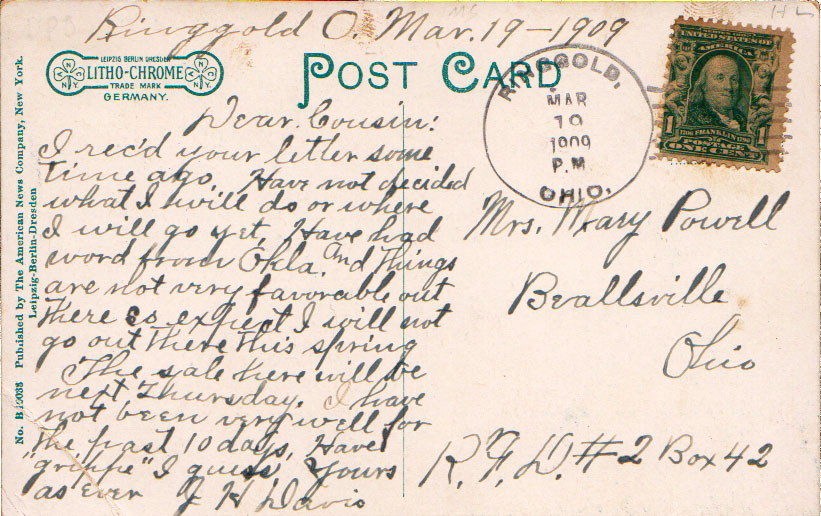 Ringgold O. Mar. 19 - 1909
LEIPZIG BERLIN DRESDEN
LITHO-CHROME
TRADE MARK
GERMANY.
N Y
N Y
POST CARD
RINGGOLD,
MAR
19
1909
P.M.
OHIO.
UNITED STATES OF
AMERICA
1 1
1706 FRANKLIN 1790
POSTAGE
ONE CENT
H L
No. B 15035 Published by The American News Company, New York.
Leipzig-Berlin-Dresden
Dear Cousin:
I rec'd your letter some
time ago. Have not decided
what I will do or where
I will go yet. Have had
word from Okla. and things
are not very favorable out
there so expect I will not
go out there this spring
The sale here will be
next Thursday. I have
not been very well for
the past 10 days, Have
"grippe" I guess, Yours
as ever J H Davis
Mrs. Mary Powell
Beallsville
Ohio
R. F. D. #2 Box 42